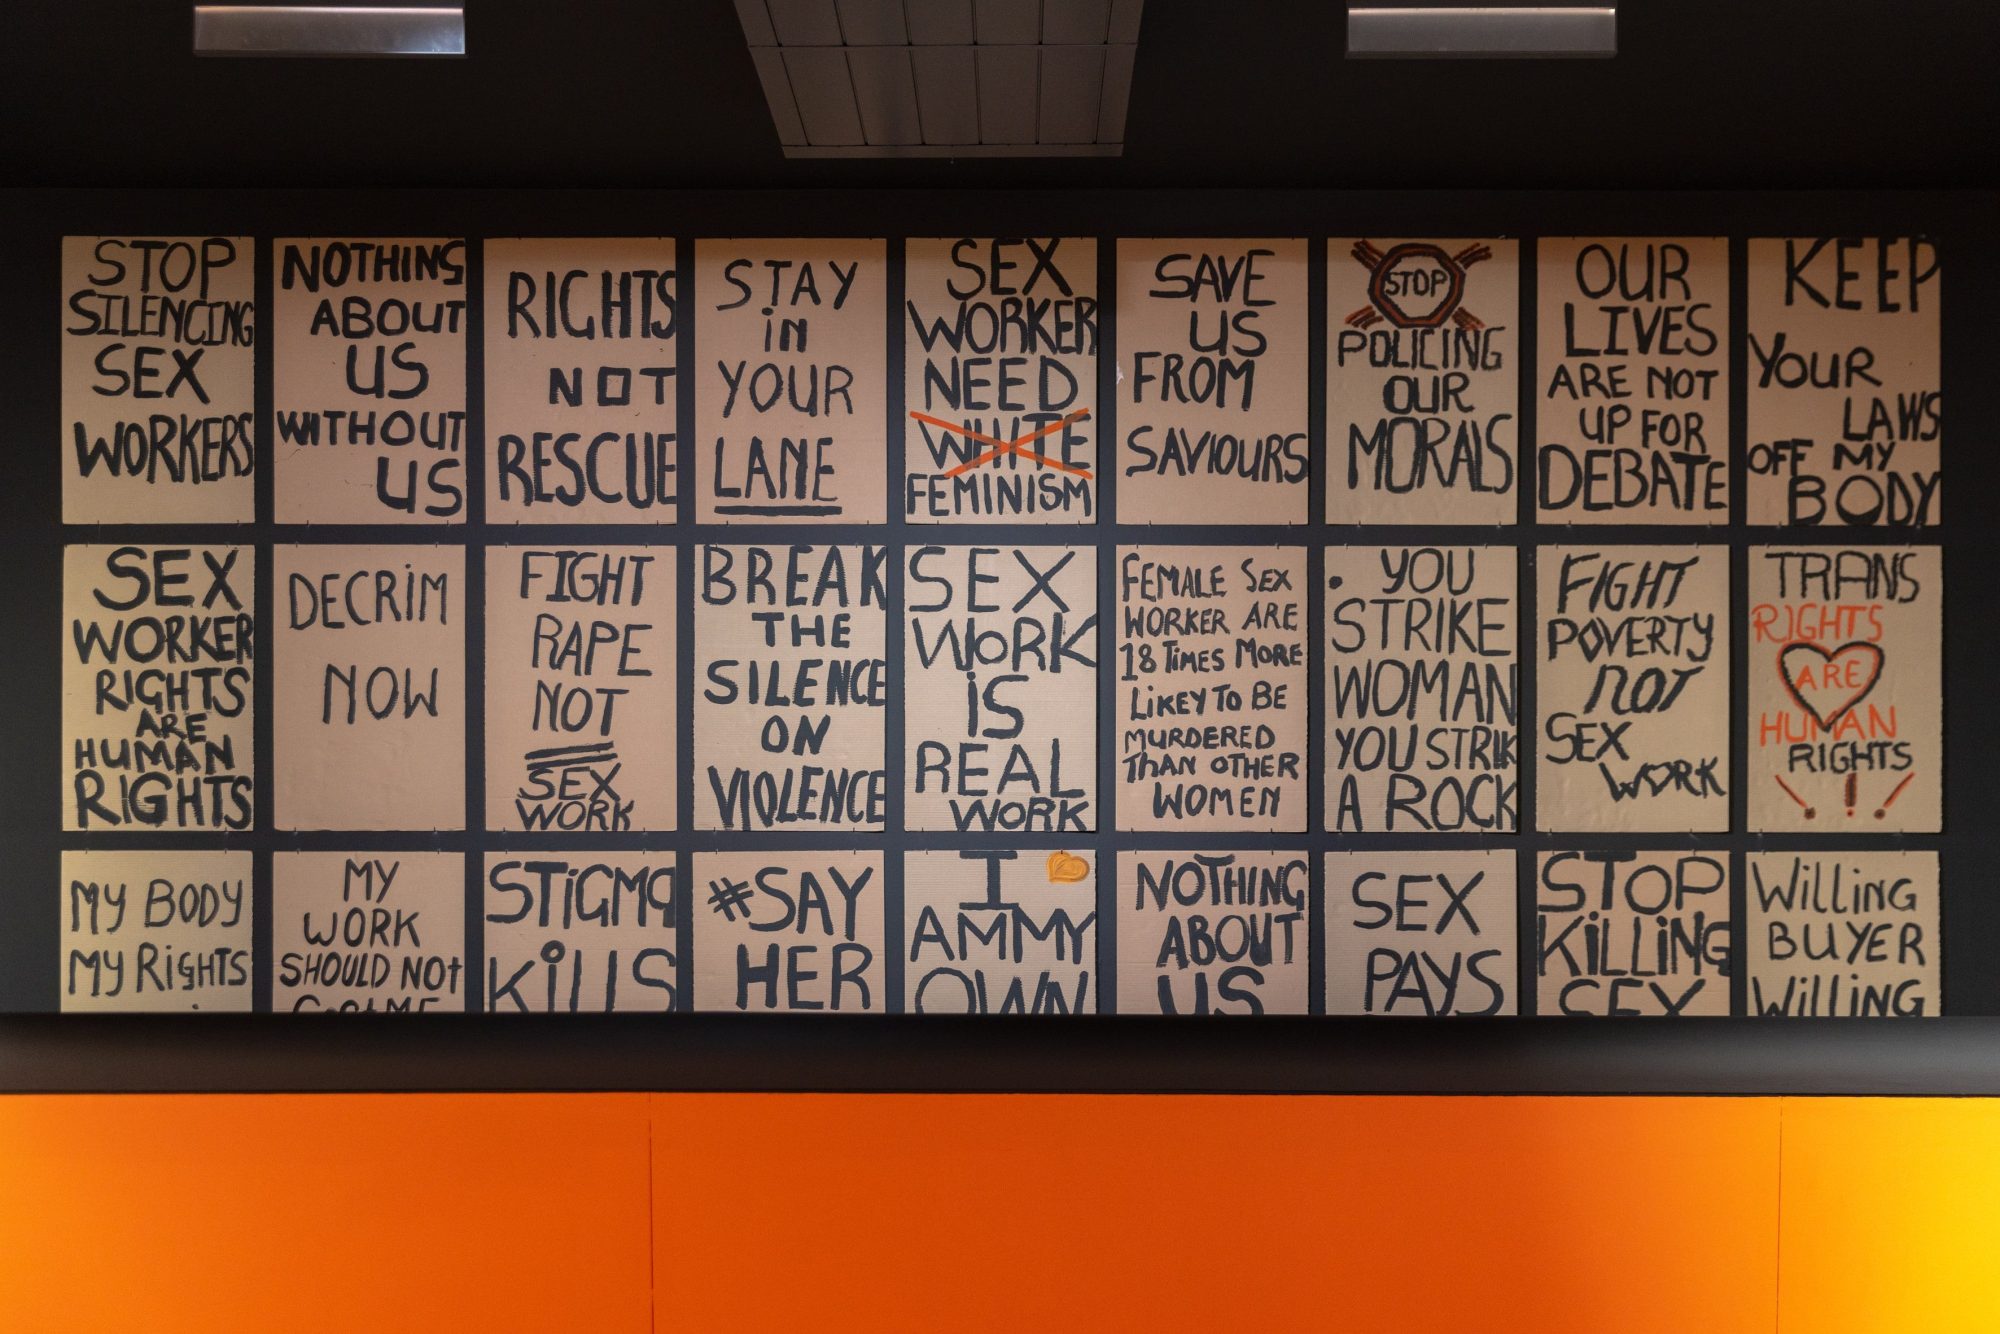 STOP
SILENCING
SEX
WORKERS
NOTHING
ABOUT
US
WITHOUT
US
RIGHTS
NOT
RESCUE
STAY
iN
YOUR
LANE
SEX
WORKER
NEED
WHITE
FEMINISM
SAVE
US
FROM
SAVIOURS
STOP
POLICING
OUR
MORALS
OUR
LIVES
ARE NOT
UP FOR
DEBATE
KEEP
YOUR
LAWS
OFF MY
BODY
SEX
WORKER
RIGHTS
ARE
HUMAN
RIGHTS
DECRiM
NOW
FIGHT
RAPE
NOT
SEX
WORK
BREAK
THE
SILENCE
ON
VIOLENCE
SEX
WORK
iS
REAL
WORK
FEMALE SEX
WORKER ARE
18 TIMES MORE
LIKEY TO BE
MURDERED
THAN OTHER
WOMEN
. YOU
STRIKE
WOMAN
YOU STRIK
A ROCK
FIGHT
POVERTY
NOT
SEX
WORK
TRANS
RIGHTS
ARE
HUMAN
RIGHTS
!!!
MY BODY
MY RiGHTS
MY
WORK
SHOULD NOt
STiGMa
KillS
#SAY
HER
I
AM MY
OWN
NOTHING
ABOUT
US
SEX
PAYS
STOP
KiLLiNG
SEX
WilliNG
BUYER
WilliNG